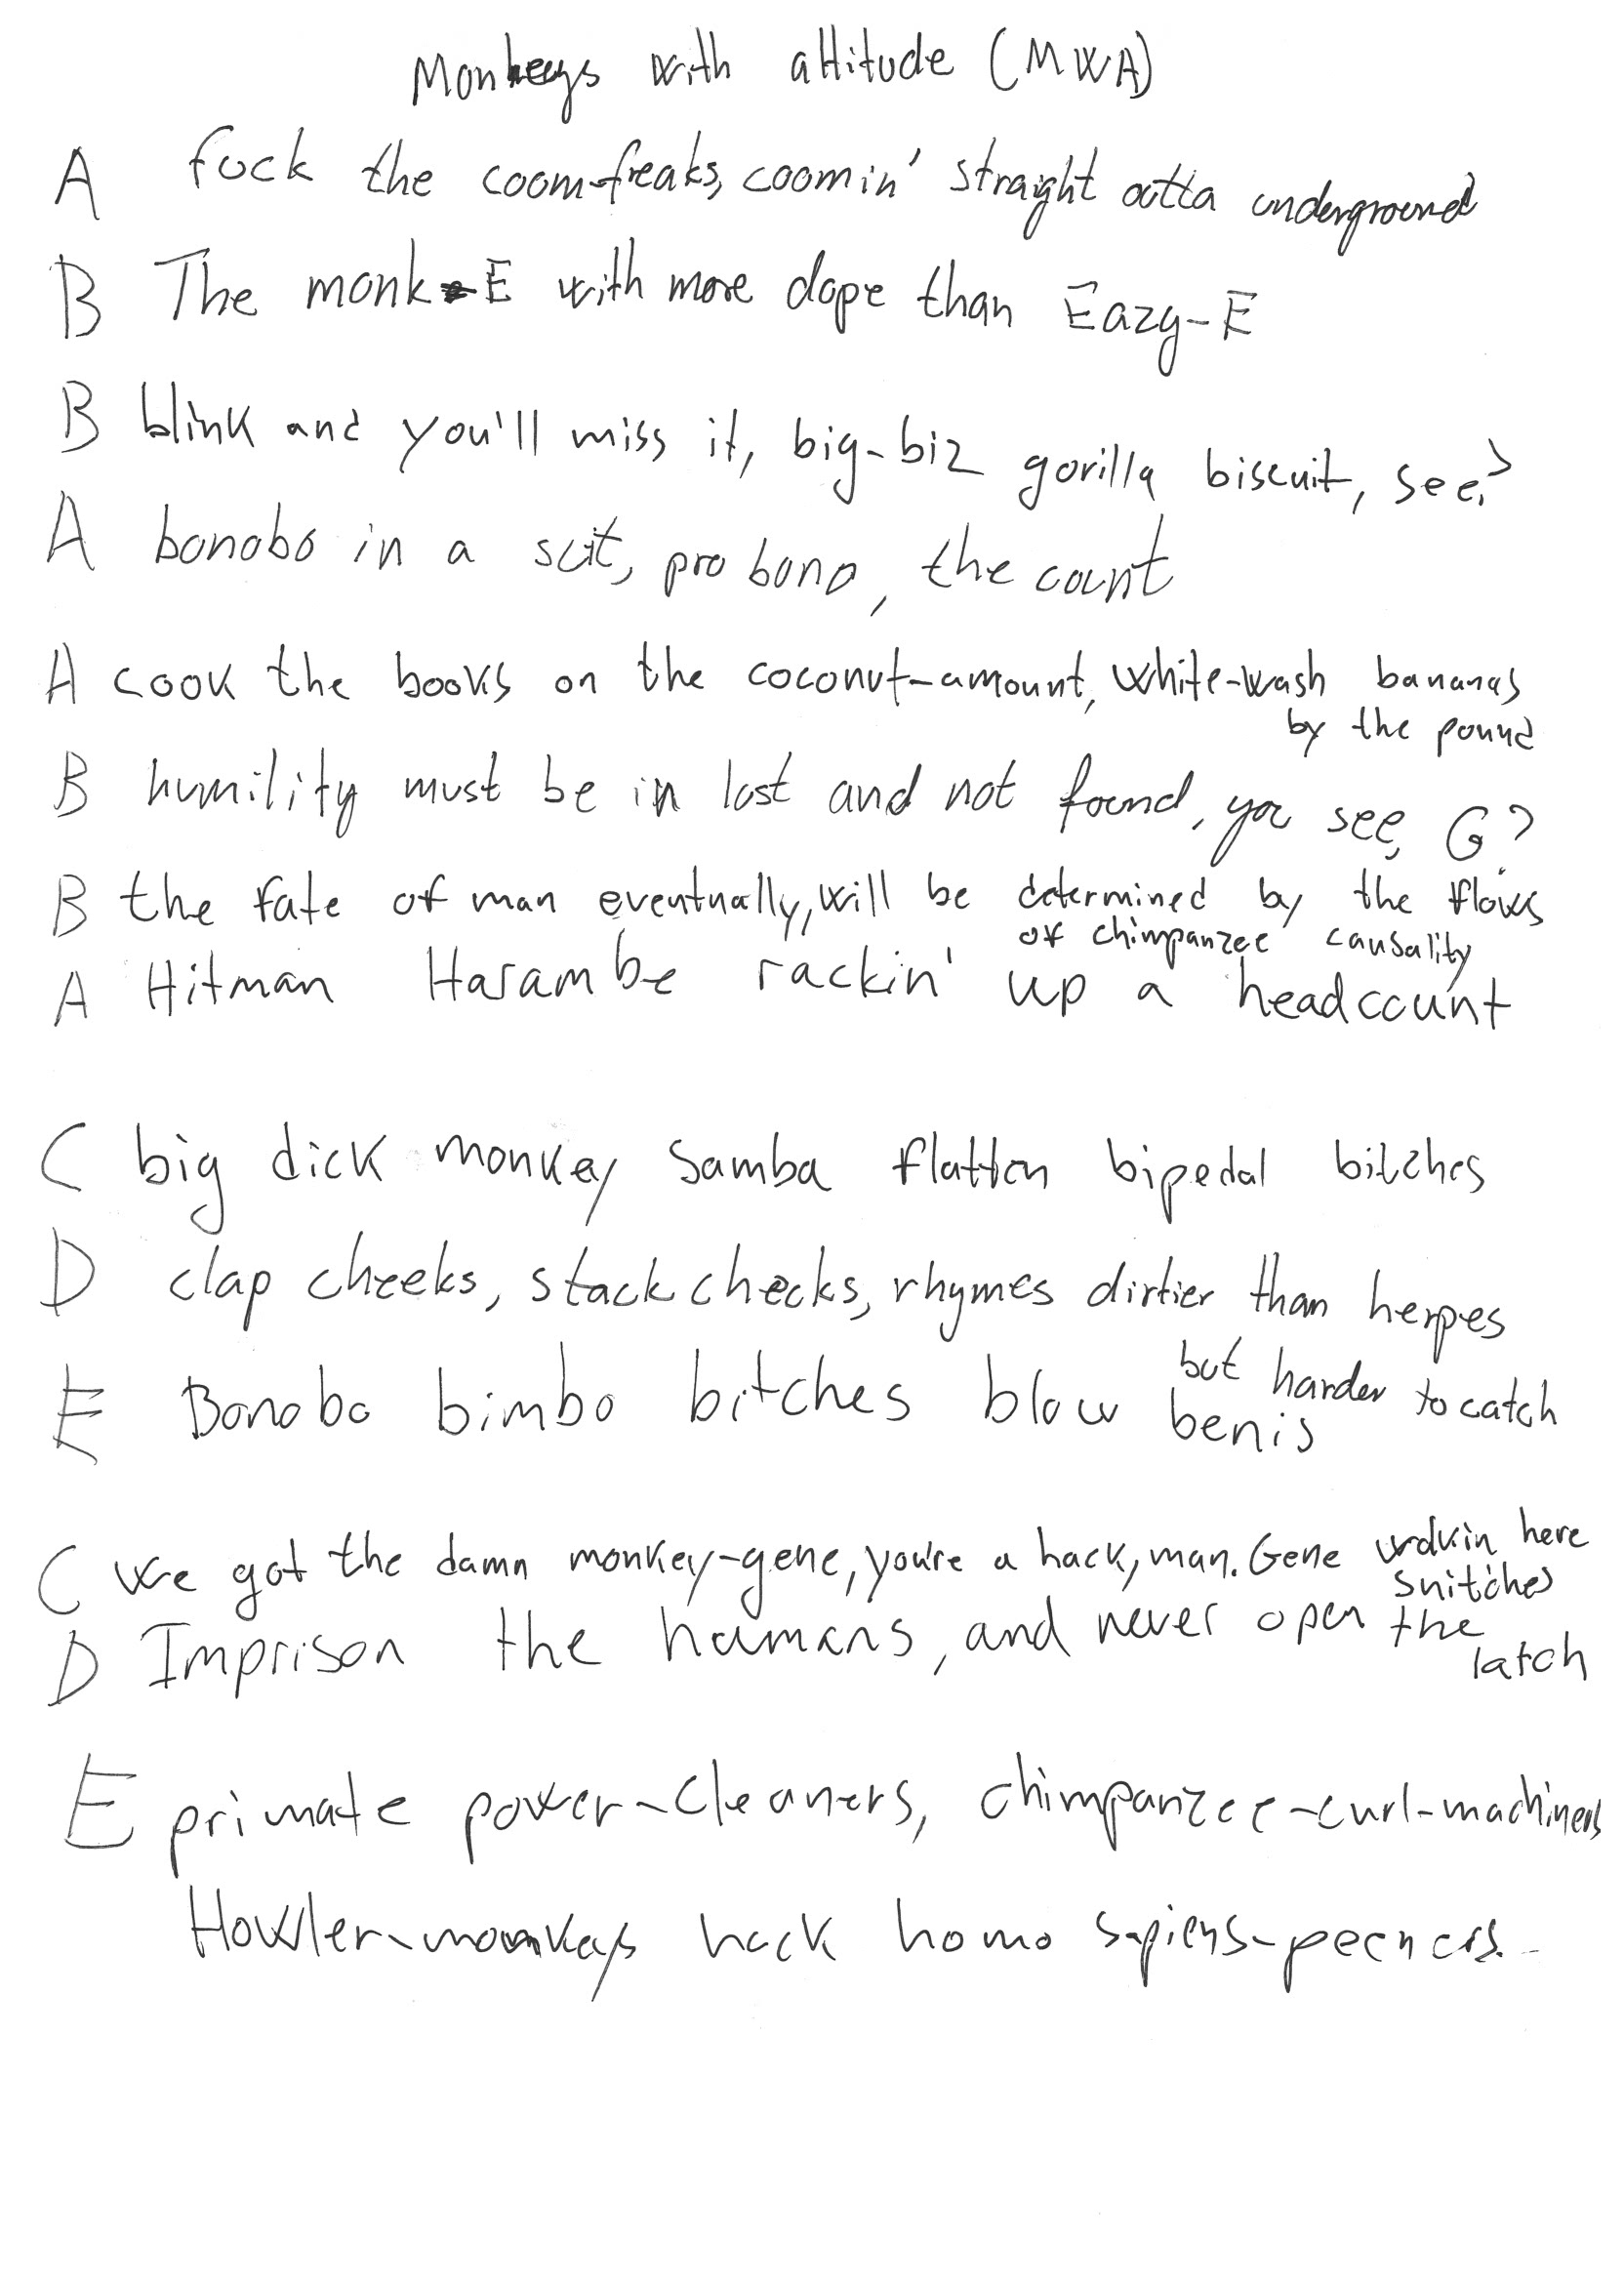 Monkeys with attitude (MWA)
A fuck the coom-freaks, coomin' straight outta underground
B The monk-E with more dope than Eazy-E
B blink and you'll miss it, big-biz gorilla biscuit, see?
A bonobo in a suit, pro bono, the count
A cook the books on the coconut-amount, white-wash bananas
by the pound
B humility must be in lost and not found, you see, G?
B the fate of man eventually, will be determined by the flows
of chimpanzee causality
A Hitman Harambe rackin' up a headcount
C big dick monkey samba flatten bipedal bitches
D clap cheeks, stack checks, rhymes dirtier than herpes
but harder to catch
E Bonobo bimbo bitches blow benis
C we got the damn monkey-gene, you're a hack, man. Gene here
snitches
D Imprison the humans, and never open the
latch
E primate power-cleaners, chimpanzee-curl-machiners
Howler-monkeys hack homo sapiens-peeners.